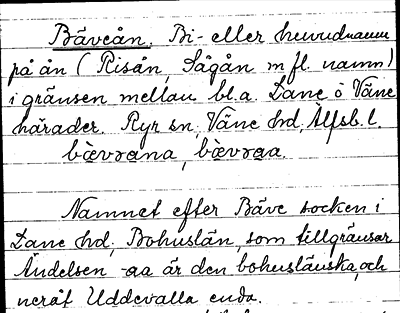 Bäveån. Bi- eller huvudnamn
på ån (Risån, Sågån m.fl. namn)
i gränsen mellan bl.a. Lane o Väne
härader. Ryr sn, Väne hd, Älfsb. l.
bævrana, bævraa.
Namnet efter Bäve socken i
Lane hd, Bohuslän, som tillgränsar
Ändelsen -aa är den bohuslänska, och
neråt Uddevalla enda.